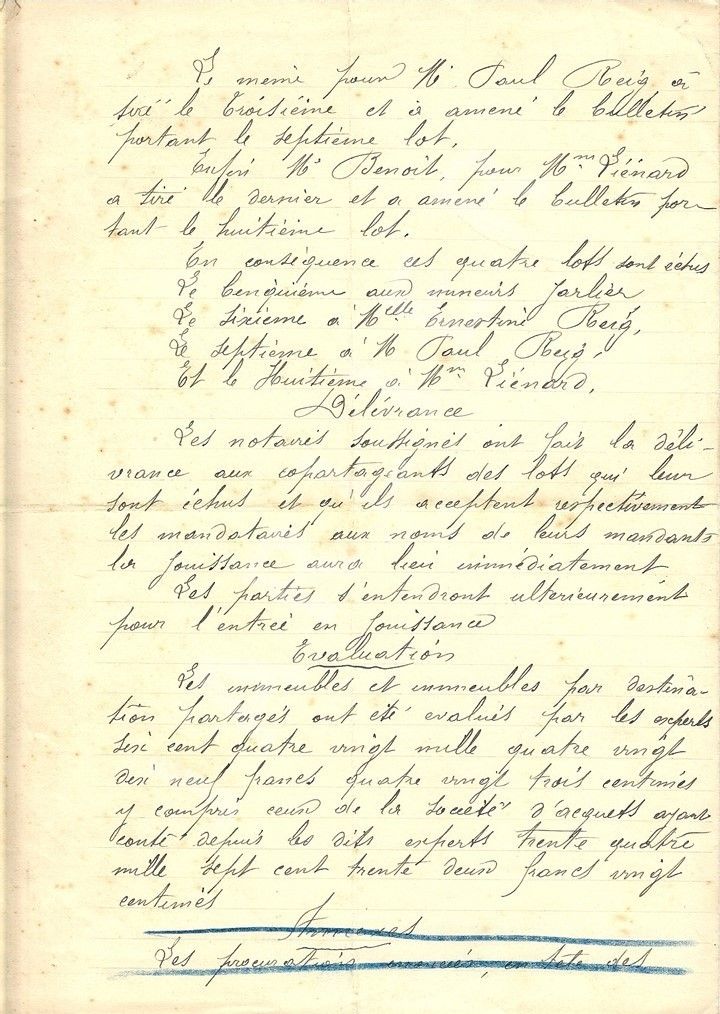 Le même pour Mr Paul Reig a
tiré le troisième et a amené le bulletin
portant le septième lot.
Enfin Mr Benoit, pour Mme Liénard
a tiré le dernier et a amené le bulletin por-
tant le huitième lot.
En conséquence ces quatre lots sont échus
Le Cinquième aux mineurs Jarlier
Le sixième à Melle Ernestine Reig,
Le septième à M Paul Reig,
Et le Huitième à Mme Liénard.
Délévrance
Les notaires soussignés ont fait la déli-
vrance aux copartageants des lots qui leur
sont échus et qu'ils acceptent respectivement
les mandataires aux noms de leurs mandants
la jouissance aura lieu immédiatement
Les parties s'entendront ulterieurement
pour l'entrée en jouissance
Evaluation
Les immeubles et immeubles par destina-
tion partagés ont été evalués par les experts
Six cent quatre vingt mille quatre vingt
dix neuf francs quatre vingt trois centimes
y compris ceux de la societé d'acquets ayant
conté depuis les dits experts trente quatre
mille sept cent trente deux francs vingt
centimes
Annexes
Les procurations enoncées, en tête des